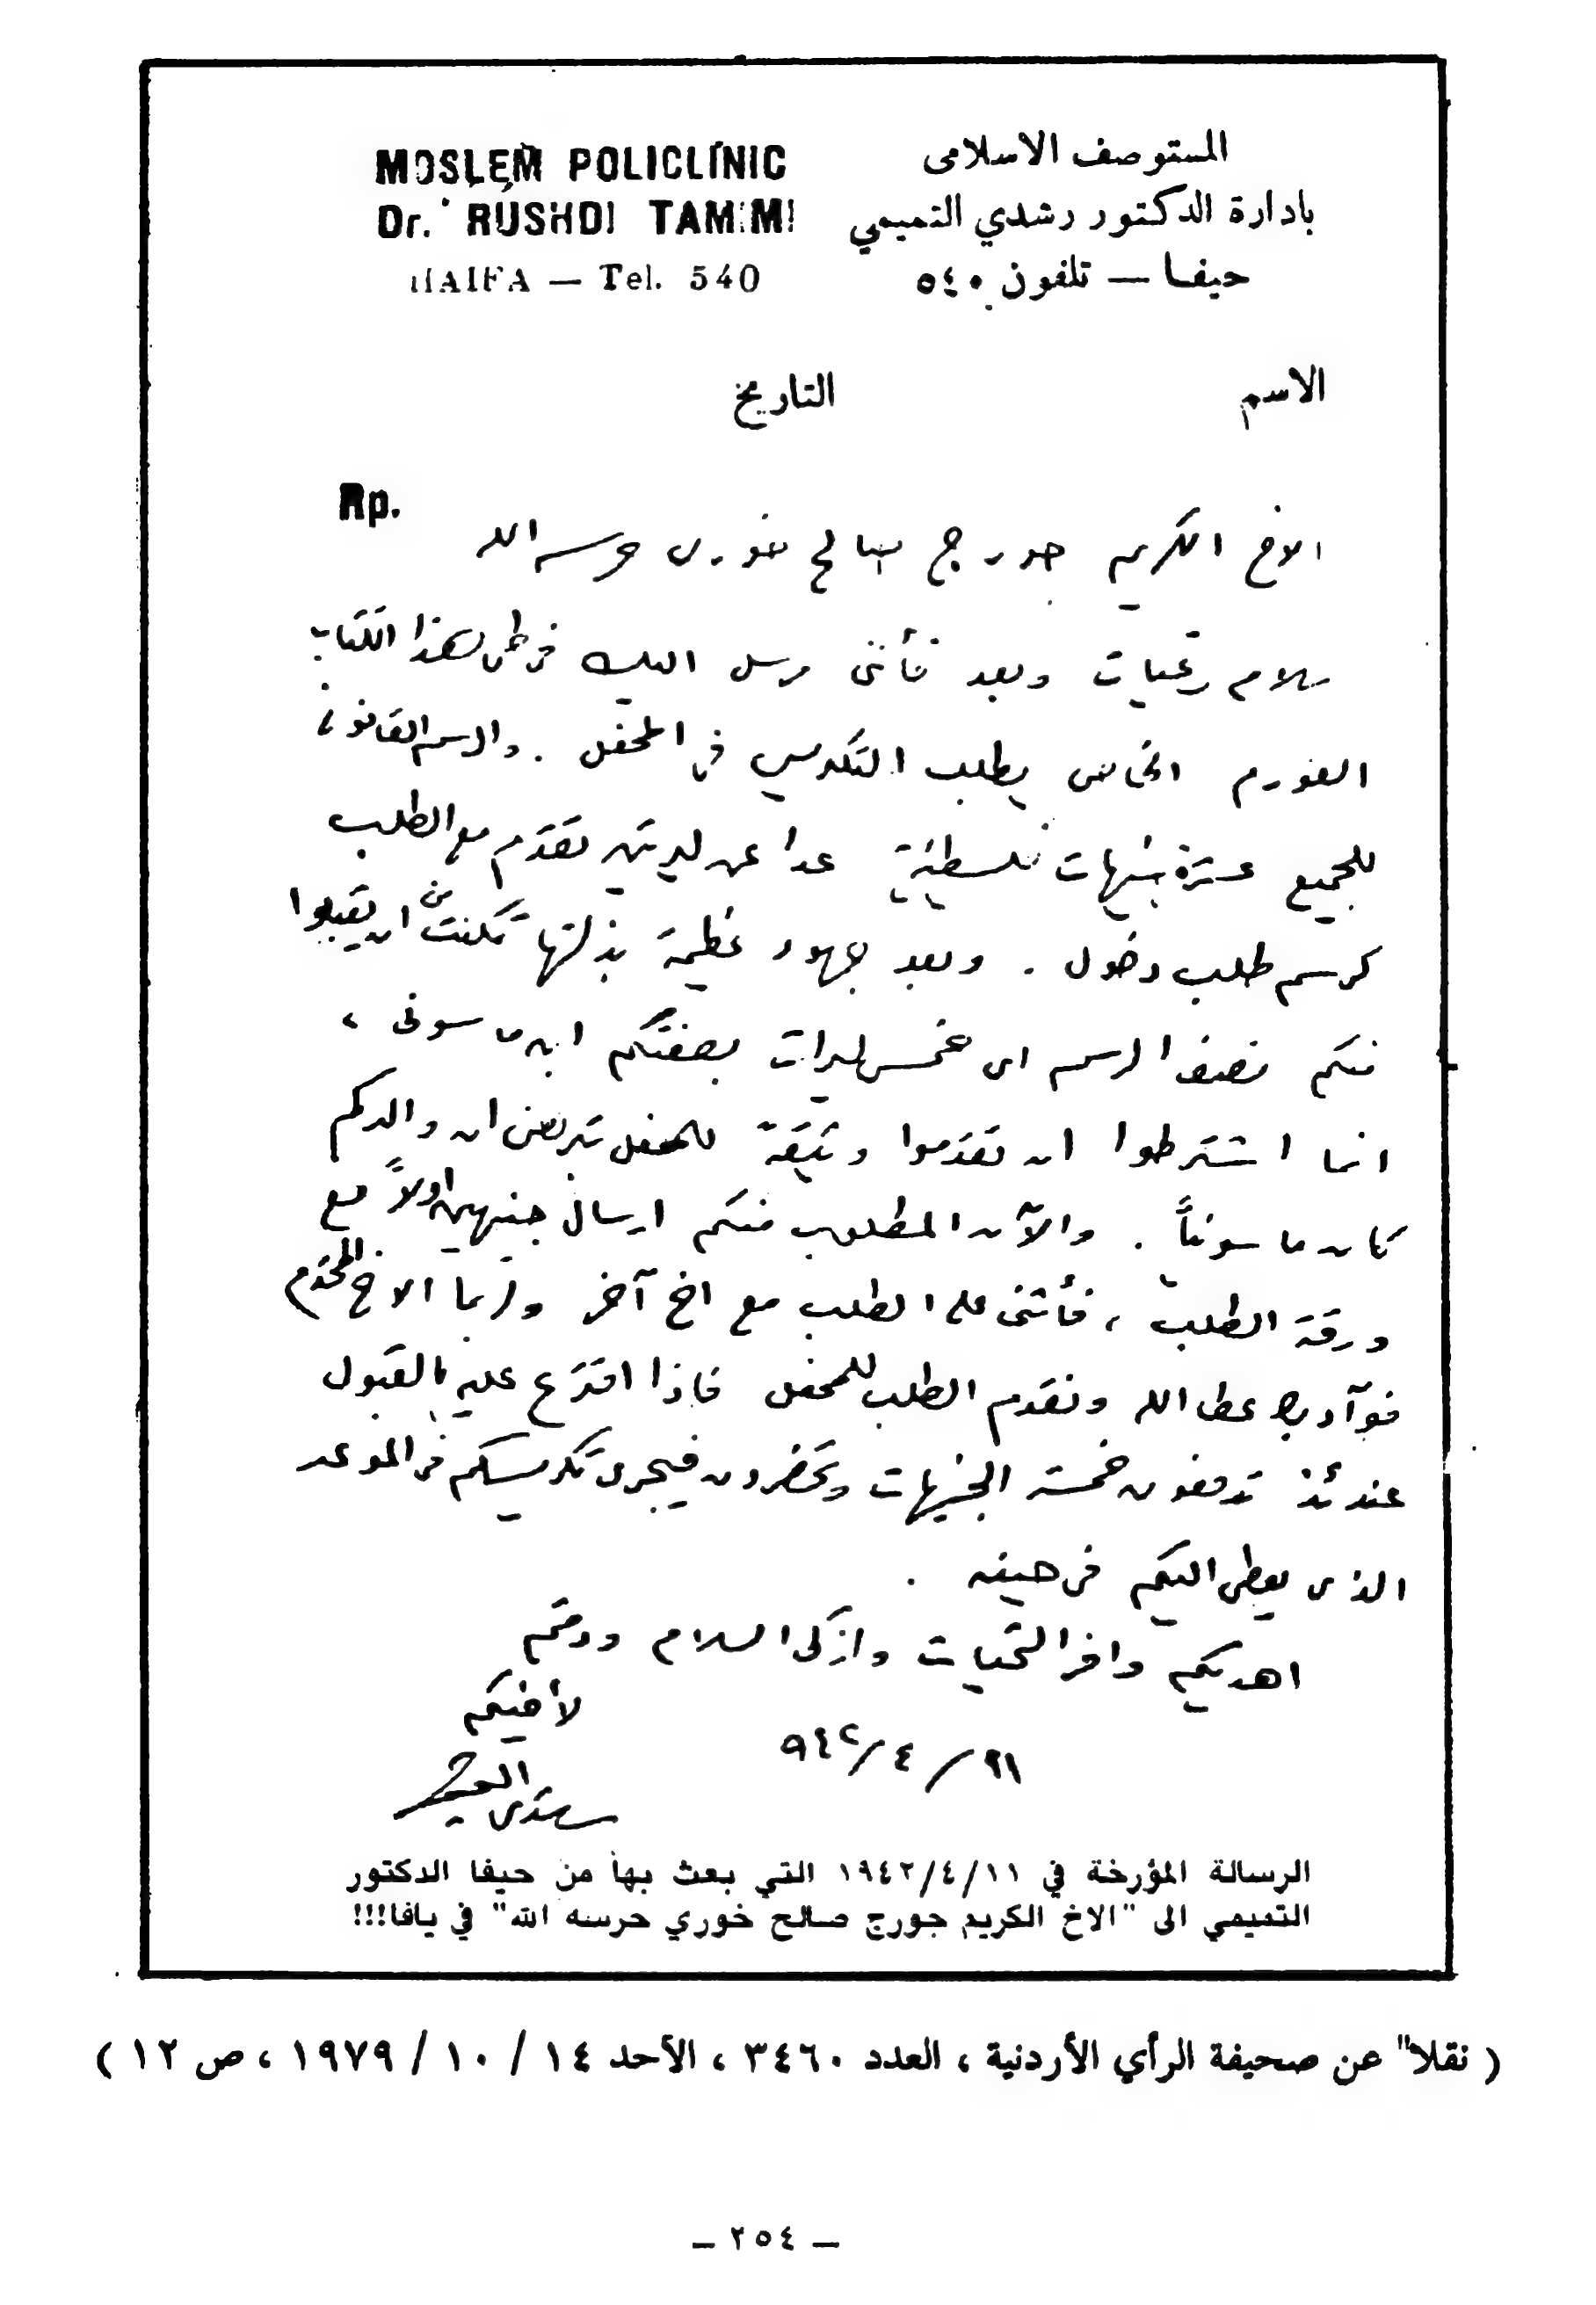 المستوصف الاسلامى
MOSLEM POLICLINIC
بادارة الدكتور رشدي التميمي
Dr. RUSHDI TAMIMI
حيفا — تلفون ٥٤٠
HAIFA — Tel. 540
الاسم
التاريخ
Rp.
الاخ الكريم جورج صالح خوري حرسه الله
سلام وتحيات وبعد فأنني مرسل اليك في طي هذا الكتاب
الفورم الخاص بطلب التكريس في المحفل . والرسم القانوني
للجميع عشرة جنيهات فلسطينية عدا عن ليرتين تقدم مع الطلب
كرسم طلب دخول . وبعد جهود عظيمة بذلتها تمكنت من ان يقبلوا
منكم نصف الرسم اي خمس ليرات بصفتكم ابن ماسوني ،
انما اشترطوا ان تقدموا وثيقة للمحفل تبرهن ان والدكم
كان ماسونياً . والآن المطلوب منكم ارسال جنيهين اولاً مع
ورقة الطلب ، فأثني على الطلب مع اخ آخر وربما الاخ المحترم
فوآد بك عطا الله ونقدم الطلب للمحفل فاذا اقترع عليه بالقبول
عندئذ تدفعون خمسة الجنيهات وتحضرون فيجري تكريسكم في الموعد
الذي يعطى اليكم في حينه .
اهديكم وافر التحيات وازكى السلام ودمتم
لأخيكم
١١/٤/٩٤٢
الرسالة المؤرخة في ١٩٤٢/٤/١١ التي بعث بها من حيفا الدكتور
التميمي الى "الاخ الكريم جورج صالح خوري حرسه الله" في يافا!!!
( نقلا" عن صحيفة الرأي الأردنية ، العدد ٣٤٦٠ ، الأحد ١٤ / ١٠ / ١٩٧٩ ، ص ١٢ )
– ٢٥٤ –